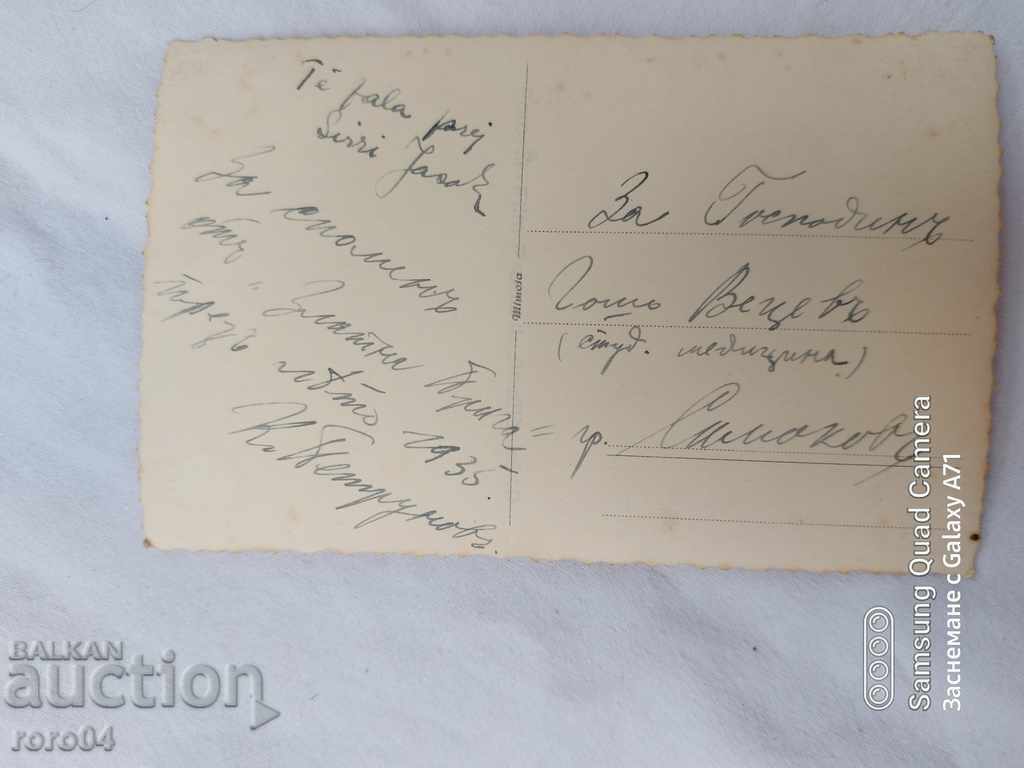 Të fala prej
Sirri
За споменъ
отъ "Златна Прага"
презъ лѣто 1935.
К. Петруновъ.
Mimosa
За Господинъ
Гошо Вецевъ
(студ. медицина)
гр. Самоковъ
BALKAN
auction
roro04
Samsung Quad Camera
Заснемане с Galaxy A71